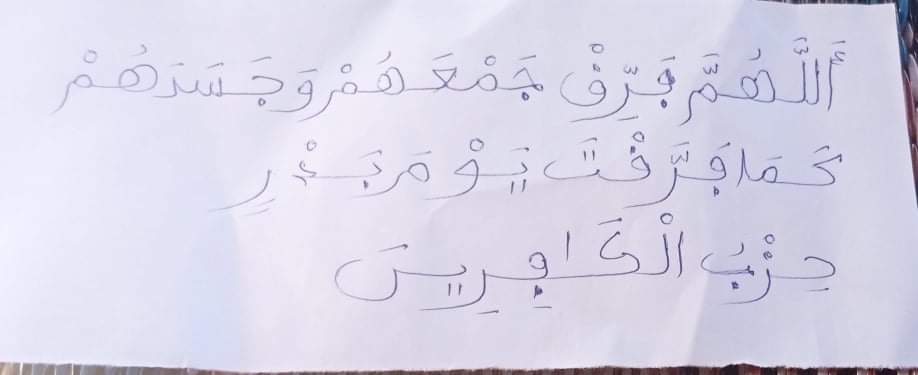 أَللَّهُمَّ فَرِّقْ جَمْعَهُمْ وَجَسَدَهُمْ
كَمَا فَرَّقْتَ يَوْمَ بَدْرٍ
حِزْبَ الْكَافِرِينَ